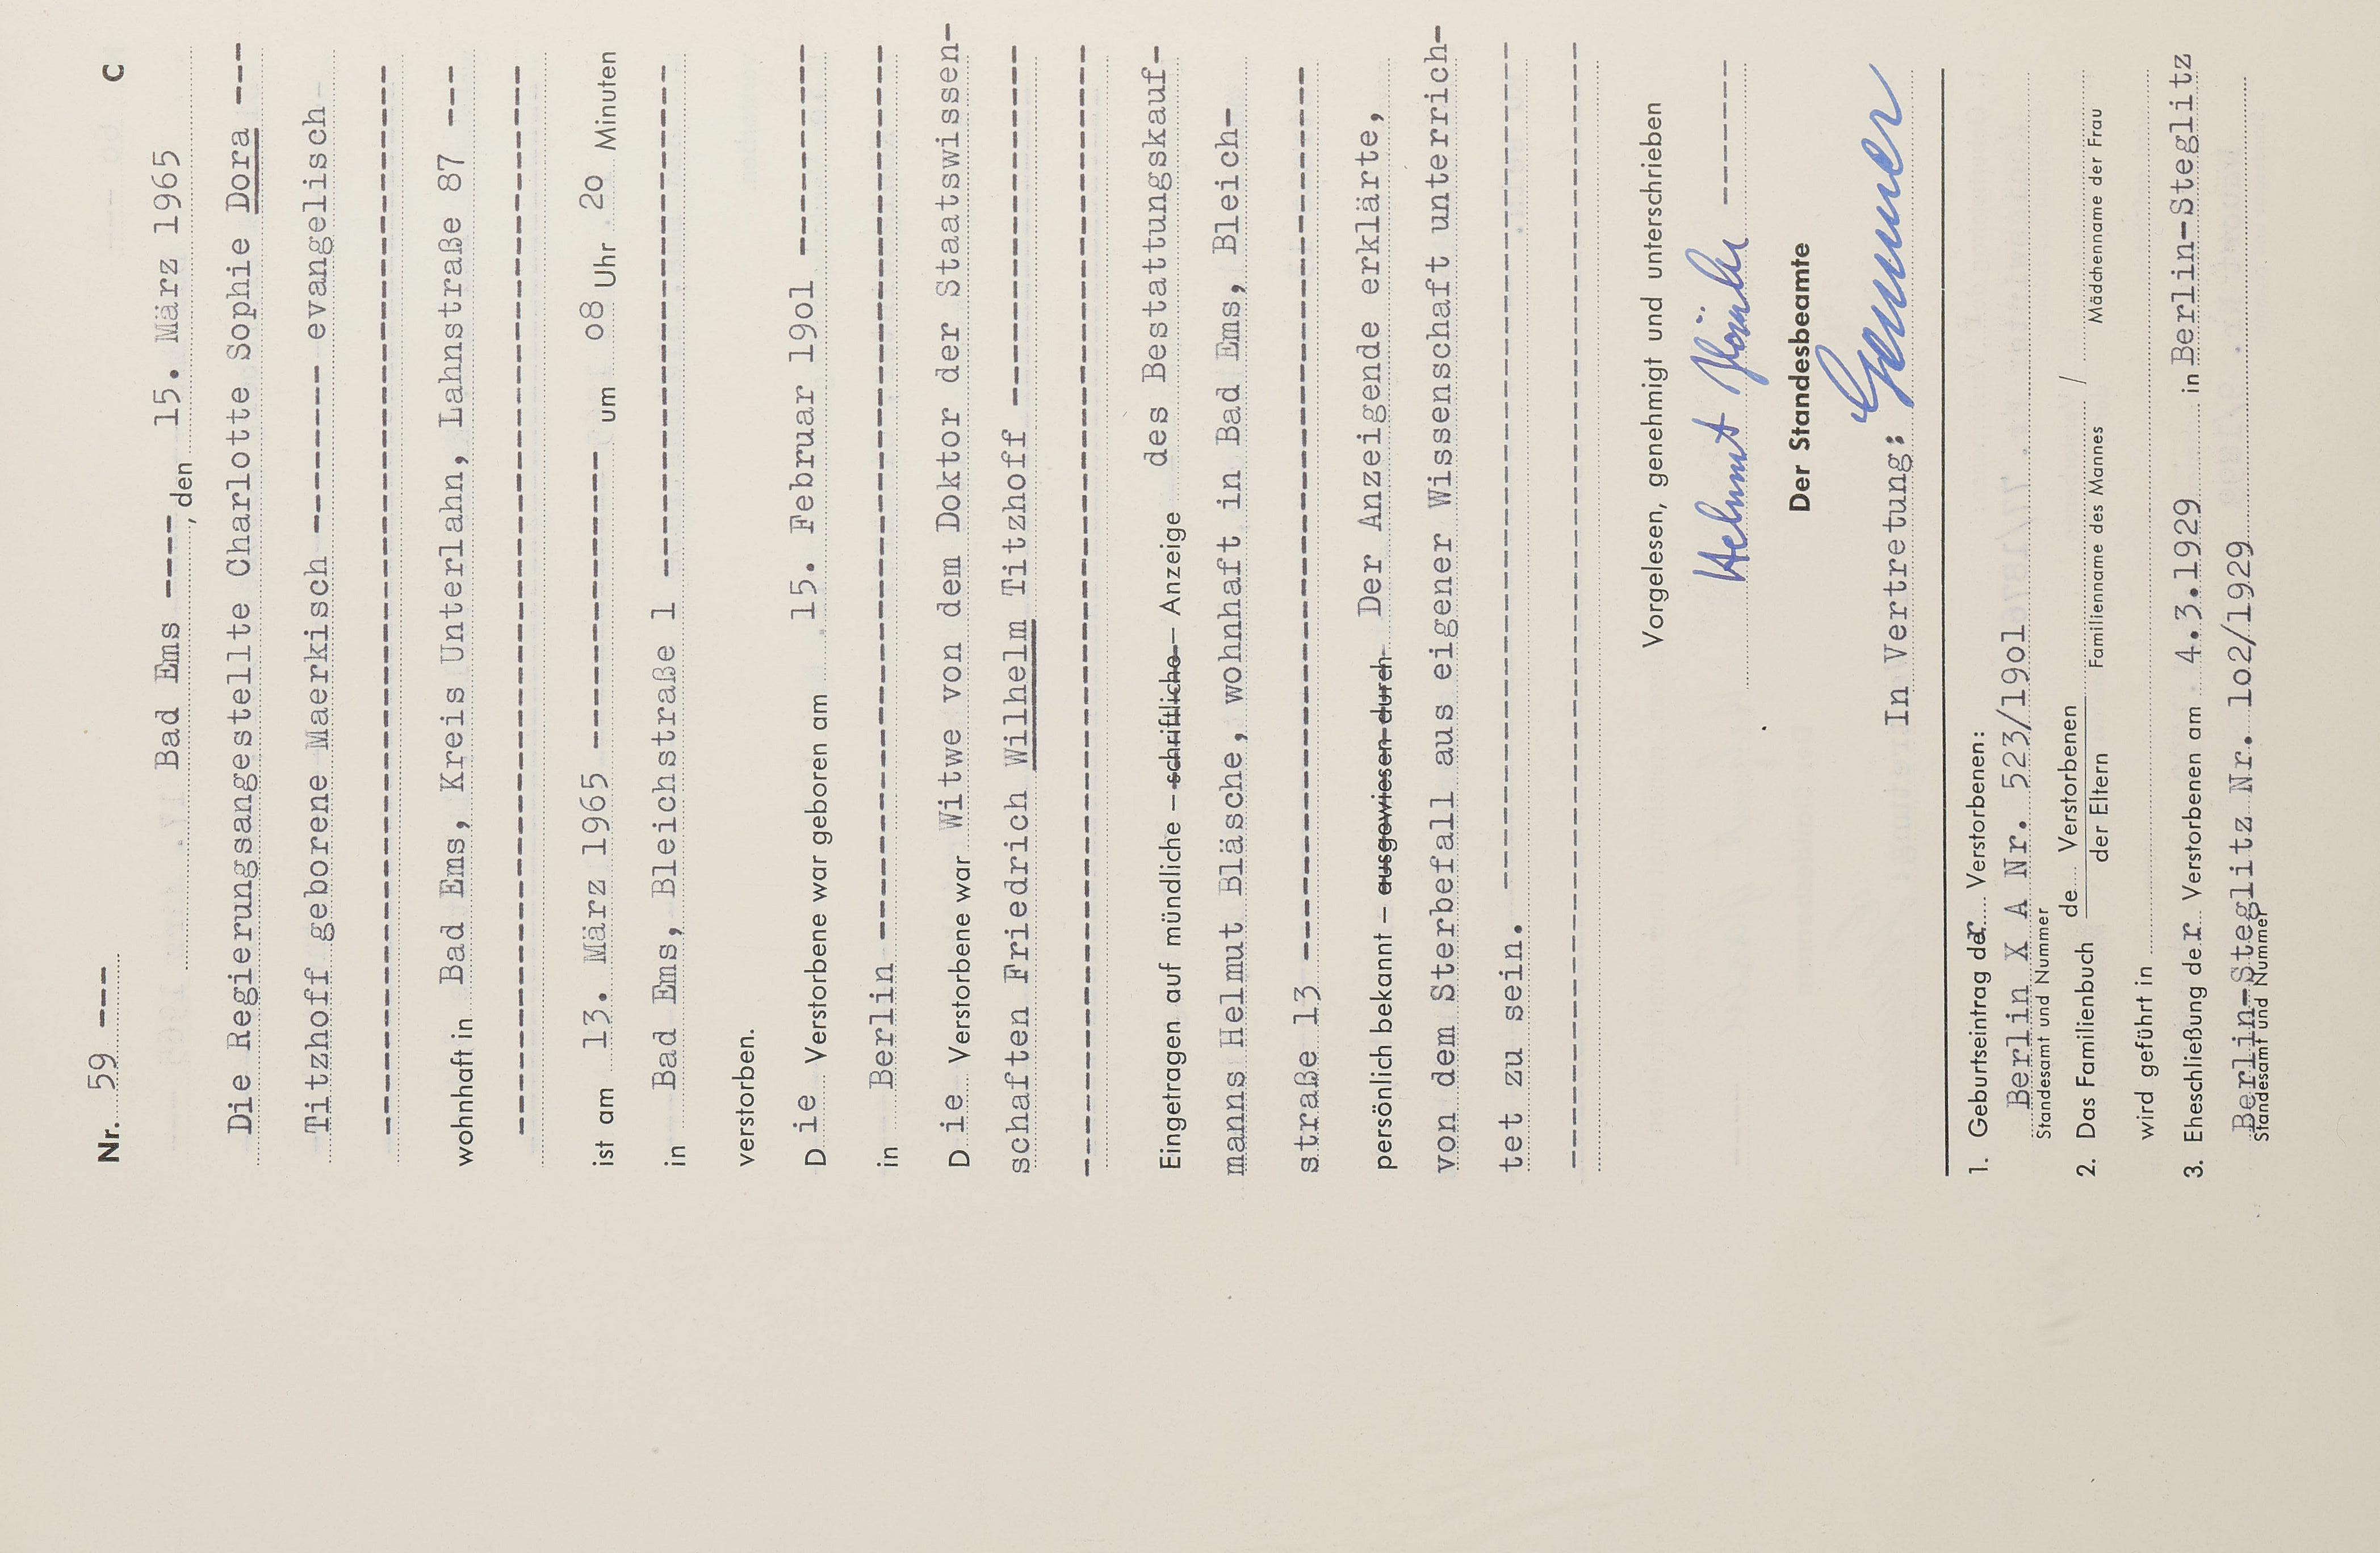 Nr. 59 --- C
Bad Ems ----, den 15. März 1965
Die Regierungsangestellte Charlotte Sophie Dora ---
Titzhoff geborene Maerkisch ------- evangelisch
wohnhaft in Bad Ems, Kreis Unterlahn, Lahnstraße 87 ---
ist am 13. März 1965 ------------ um o8 Uhr 2o Minuten
in Bad Ems, Bleichstraße 1 ----------------------
verstorben.
Die Verstorbene war geboren am 15. Februar 19o1 ---------
in Berlin ----------------------------------------
Die Verstorbene war Witwe von dem Doktor der Staatswissen-
schaften Friedrich Wilhelm Titzhoff ----------------
Eingetragen auf mündliche – schriftliche – Anzeige des Bestattungskauf-
manns Helmut Bläsche, wohnhaft in Bad Ems, Bleich-
straße 13 --------------------------------------
persönlich bekannt – ausgewiesen durch Der Anzeigende erklärte,
von dem Sterbefall aus eigener Wissenschaft unterrich-
tet zu sein. ------------------------------------
Vorgelesen, genehmigt und unterschrieben
Helmut Bläsche ------
Der Standesbeamte
In Vertretung:
1. Geburtseintrag der Verstorbenen:
Berlin X A Nr. 523/19o1
Standesamt und Nummer
2. Das Familienbuch de Verstorbenen /
der Eltern Familienname des Mannes Mädchenname der Frau
wird geführt in
3. Eheschließung der Verstorbenen am 4.3.1929 in Berlin-Steglitz
Berlin-Steglitz Nr. 1o2/1929
Standesamt und Nummer